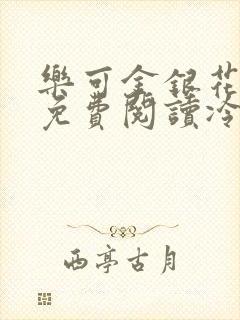 樂可金銀花
免費閱讀冷
西亭古月